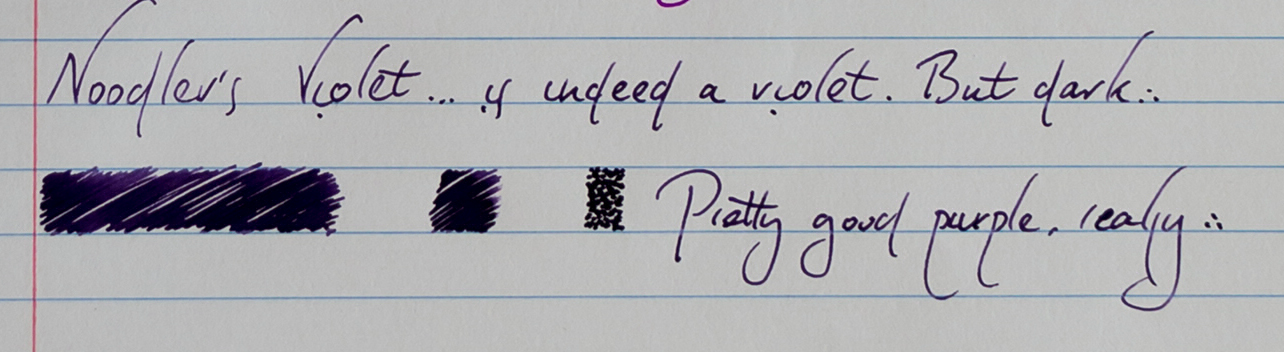 Noodler's Violet... is indeed a violet. But dark...
Pretty good purple, really...